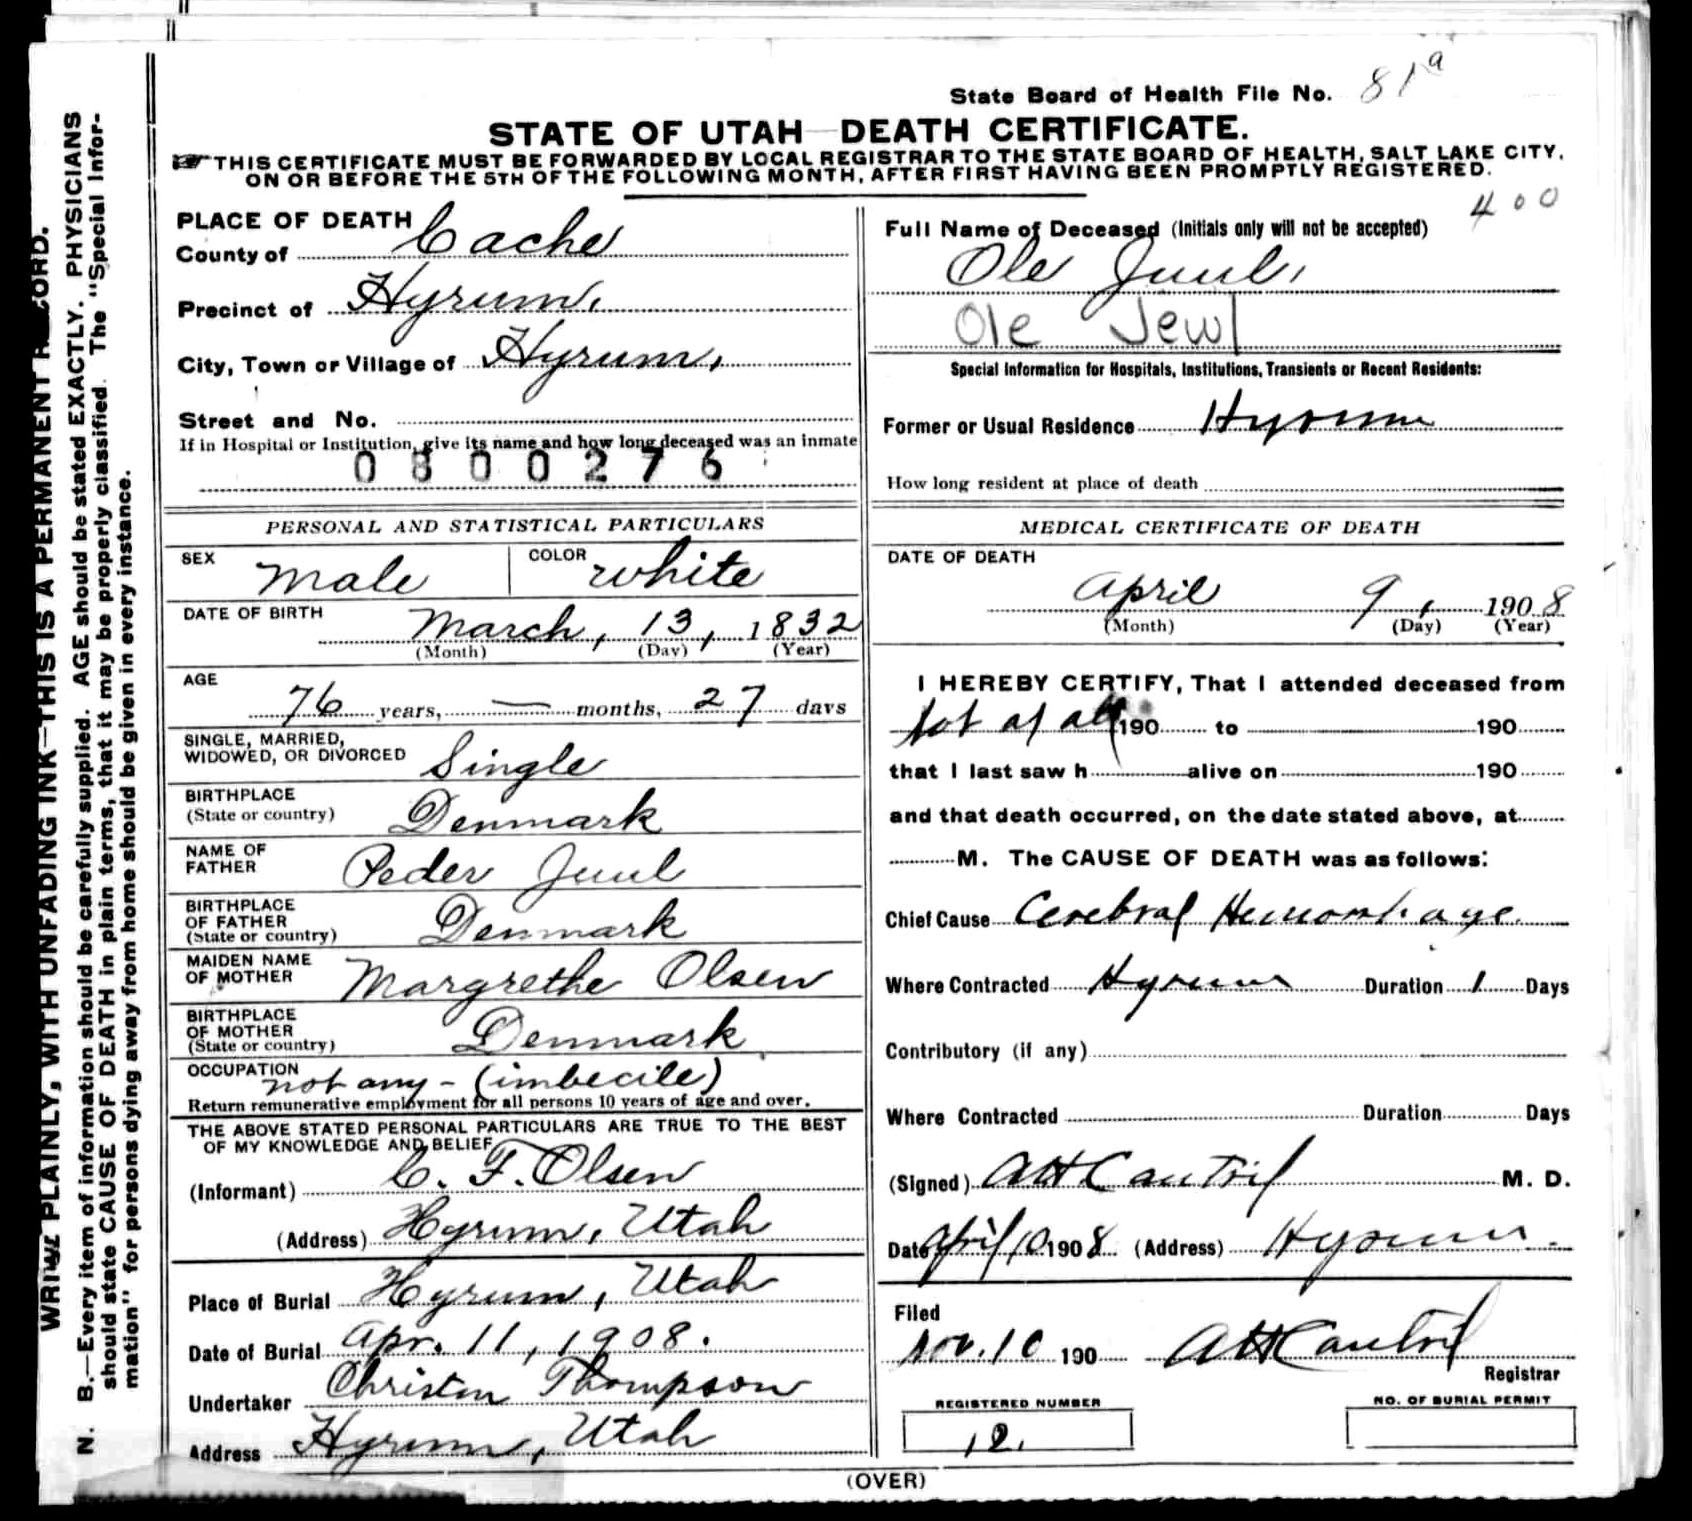 State Board of Health File No. 81a
STATE OF UTAH DEATH CERTIFICATE.
THIS CERTIFICATE MUST BE FORWARDED BY LOCAL REGISTRAR TO THE STATE BOARD OF HEALTH, SALT LAKE CITY,
ON OR BEFORE THE 5TH OF THE FOLLOWING MONTH, AFTER FIRST HAVING BEEN PROMPTLY REGISTERED.
400
PLACE OF DEATH
County of Cache
Precinct of Hyrum,
City, Town or Village of Hyrum,
Street and No.
If in Hospital or Institution, give its name and how long deceased was an inmate
0800276
PERSONAL AND STATISTICAL PARTICULARS
SEX Male COLOR White
DATE OF BIRTH March, 13, 1832
(Month) (Day) (Year)
AGE
76 years, — months, 27 days
SINGLE, MARRIED,
WIDOWED, OR DIVORCED Single
BIRTHPLACE
(State or country) Denmark
NAME OF
FATHER Peder Juul
BIRTHPLACE
OF FATHER
(State or country) Denmark
MAIDEN NAME
OF MOTHER Margrethe Olsen
BIRTHPLACE
OF MOTHER
(State or country) Denmark
OCCUPATION
not any - (imbecile)
Return remunerative employment for all persons 10 years of age and over.
THE ABOVE STATED PERSONAL PARTICULARS ARE TRUE TO THE BEST
OF MY KNOWLEDGE AND BELIEF
(Informant) C. F. Olsen
(Address) Hyrum, Utah
Place of Burial Hyrum, Utah
Date of Burial Apr. 11, 1908.
Undertaker Christen Thompson
Address Hyrum, Utah
Full Name of Deceased (Initials only will not be accepted)
Ole Juul,
Ole Jewl
Special Information for Hospitals, Institutions, Transients or Recent Residents:
Former or Usual Residence Hyrum
How long resident at place of death
MEDICAL CERTIFICATE OF DEATH
DATE OF DEATH
April 9, 1908
(Month) (Day) (Year)
I HEREBY CERTIFY, That I attended deceased from
Not at all 190 to 190
that I last saw h alive on 190
and that death occurred, on the date stated above, at
M. The CAUSE OF DEATH was as follows:
Chief Cause Cerebral Hemorrhage
Where Contracted Hyrum Duration 1 Days
Contributory (if any)
Where Contracted Duration Days
(Signed) A H Cantril M. D.
Date April 10 1908 (Address) Hyrum
Filed
Nov. 10 190 A H Cantril
Registrar
REGISTERED NUMBER
12.
NO. OF BURIAL PERMIT
(OVER)
WRITE PLAINLY, WITH UNFADING INK—THIS IS A PERMANENT RECORD.
N. B.—Every item of information should be carefully supplied. AGE should be stated EXACTLY. PHYSICIANS
should state CAUSE OF DEATH in plain terms, that it may be properly classified. The "Special Infor-
mation" for persons dying away from home should be given in every instance.